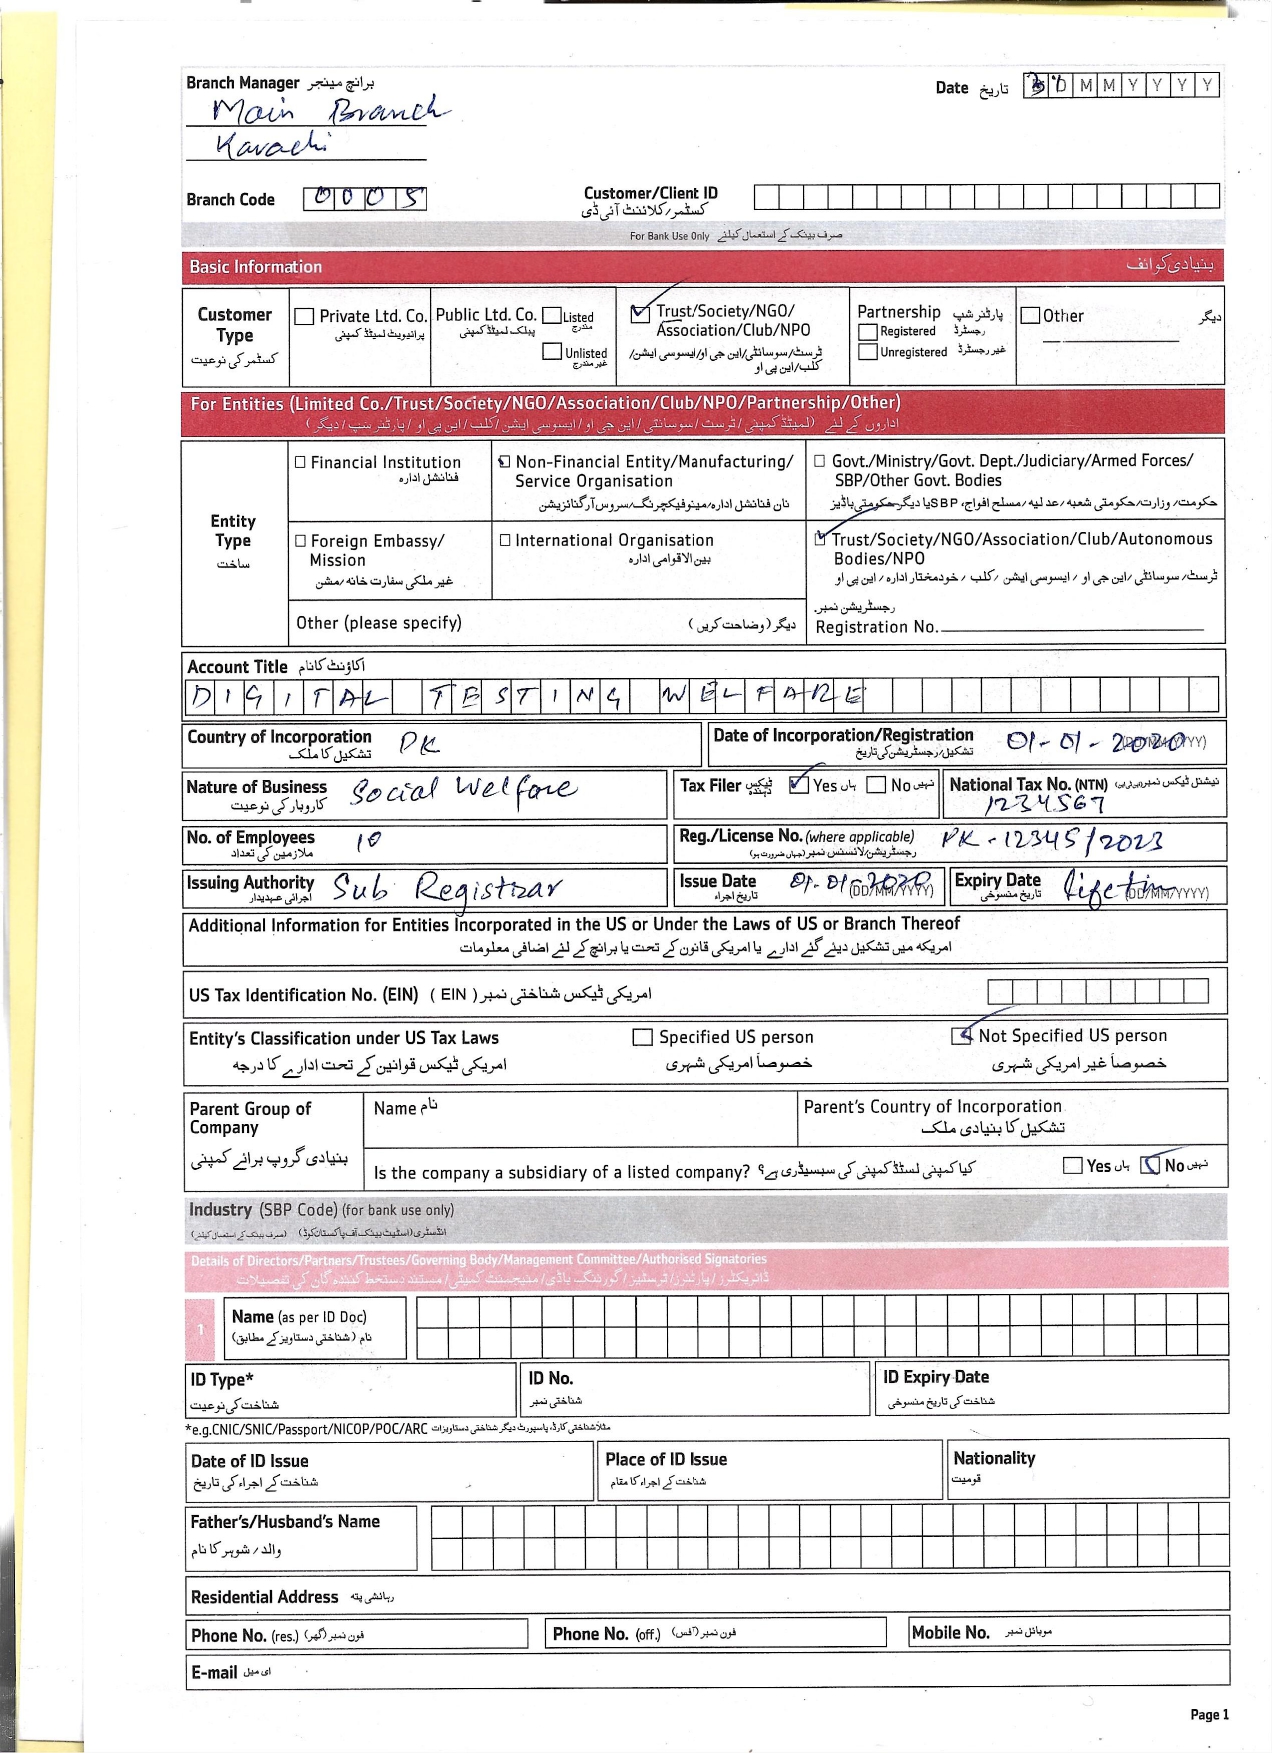 Branch Manager برانچ مینیجر
Main Branch
Karachi
Date تاریخ D M M Y Y Y Y
Branch Code 0005
Customer/Client ID
کسٹمر/کلائنٹ آئی ڈی
For Bank Use Only صرف بینک کے استعمال کیلئے
Basic Information بنیادی کوائف
Customer Type کسٹمر کی نوعیت
Private Ltd. Co. پرائیویٹ لمیٹڈ کمپنی
Public Ltd. Co. پبلک لمیٹڈ کمپنی
Listed مندرج
Unlisted غیر مندرج
Trust/Society/NGO/
Association/Club/NPO
ٹرسٹ/سوسائٹی/این جی او/ایسوسی ایشن/
کلب/این پی او
Partnership پارٹنر شپ
Registered رجسٹرڈ
Unregistered غیر رجسٹرڈ
Other دیگر
For Entities (Limited Co./Trust/Society/NGO/Association/Club/NPO/Partnership/Other)
اداروں کے لئے (لمیٹڈ کمپنی/ٹرسٹ/سوسائٹی/این جی او/ایسوسی ایشن/کلب/این پی او/پارٹنر شپ/دیگر)
Entity Type ساخت
Financial Institution
فنانشل ادارہ
Non-Financial Entity/Manufacturing/
Service Organisation
نان فنانشل ادارہ/مینوفیکچرنگ/سروس آرگنائزیشن
Govt./Ministry/Govt. Dept./Judiciary/Armed Forces/
SBP/Other Govt. Bodies
حکومت/وزارت/حکومتی شعبہ/عدلیہ/مسلح افواج، SBP یا دیگر حکومتی باڈیز
Foreign Embassy/
Mission
غیر ملکی سفارت خانہ/مشن
International Organisation
بین الاقوامی ادارہ
Trust/Society/NGO/Association/Club/Autonomous
Bodies/NPO
ٹرسٹ/سوسائٹی/این جی او/ایسوسی ایشن/کلب/خودمختار ادارہ/این پی او
Other (please specify) دیگر (وضاحت کریں)
رجسٹریشن نمبر
Registration No.
Account Title اکاؤنٹ کا نام
DIGITAL TESTING WELFARE
Country of Incorporation PK
تشکیل کا ملک
Date of Incorporation/Registration 01-01-2020 (DD/MM/YYYY)
تشکیل/رجسٹریشن کی تاریخ
Nature of Business Social Welfare
کاروبار کی نوعیت
Tax Filer ٹیکس دہندہ Yes ہاں No نہیں
National Tax No. (NTN) نیشنل ٹیکس نمبر (این ٹی این)
1234567
No. of Employees 10
ملازمین کی تعداد
Reg./License No. (where applicable) PK-12345/2023
رجسٹریشن/لائسنس نمبر (جہاں ضرورت ہو)
Issuing Authority Sub Registrar
اجرائی عہدیدار
Issue Date 01-01-2020 (DD/MM/YYYY)
تاریخ اجراء
Expiry Date Lifetim (DD/MM/YYYY)
تاریخ منسوخی
Additional Information for Entities Incorporated in the US or Under the Laws of US or Branch Thereof
امریکہ میں تشکیل دیئے گئے ادارے یا امریکی قانون کے تحت یا برانچ کے لئے اضافی معلومات
US Tax Identification No. (EIN) امریکی ٹیکس شناختی نمبر (EIN)
Entity's Classification under US Tax Laws
امریکی ٹیکس قوانین کے تحت ادارے کا درجہ
Specified US person
خصوصاً امریکی شہری
Not Specified US person
خصوصاً غیر امریکی شہری
Parent Group of
Company
بنیادی گروپ برائے کمپنی
Name نام
Parent's Country of Incorporation
تشکیل کا بنیادی ملک
Is the company a subsidiary of a listed company? کیا کمپنی لسٹڈ کمپنی کی سبسیڈری ہے؟ Yes ہاں No نہیں
Industry (SBP Code) (for bank use only)
انڈسٹری (اسٹیٹ بینک آف پاکستان کوڈ) (صرف بینک کے استعمال کیلئے)
Details of Directors/Partners/Trustees/Governing Body/Management Committee/Authorised Signatories
ڈائریکٹرز/پارٹنرز/ٹرسٹیز/گورننگ باڈی/مینجمنٹ کمیٹی/مستند دستخط کنندہ گان کی تفصیلات
1
Name (as per ID Doc)
نام (شناختی دستاویز کے مطابق)
ID Type*
شناخت کی نوعیت
ID No.
شناختی نمبر
ID Expiry Date
شناخت کی تاریخ منسوخی
*e.g.CNIC/SNIC/Passport/NICOP/POC/ARC مثلاً شناختی کارڈ، پاسپورٹ دیگر شناختی دستاویزات
Date of ID Issue
شناخت کے اجراء کی تاریخ
Place of ID Issue
شناخت کے اجراء کا مقام
Nationality
قومیت
Father's/Husband's Name
والد/شوہر کا نام
Residential Address رہائشی پتہ
Phone No. (res.) فون نمبر (گھر)
Phone No. (off.) فون نمبر (آفس)
Mobile No. موبائل نمبر
E-mail ای میل
Page 1